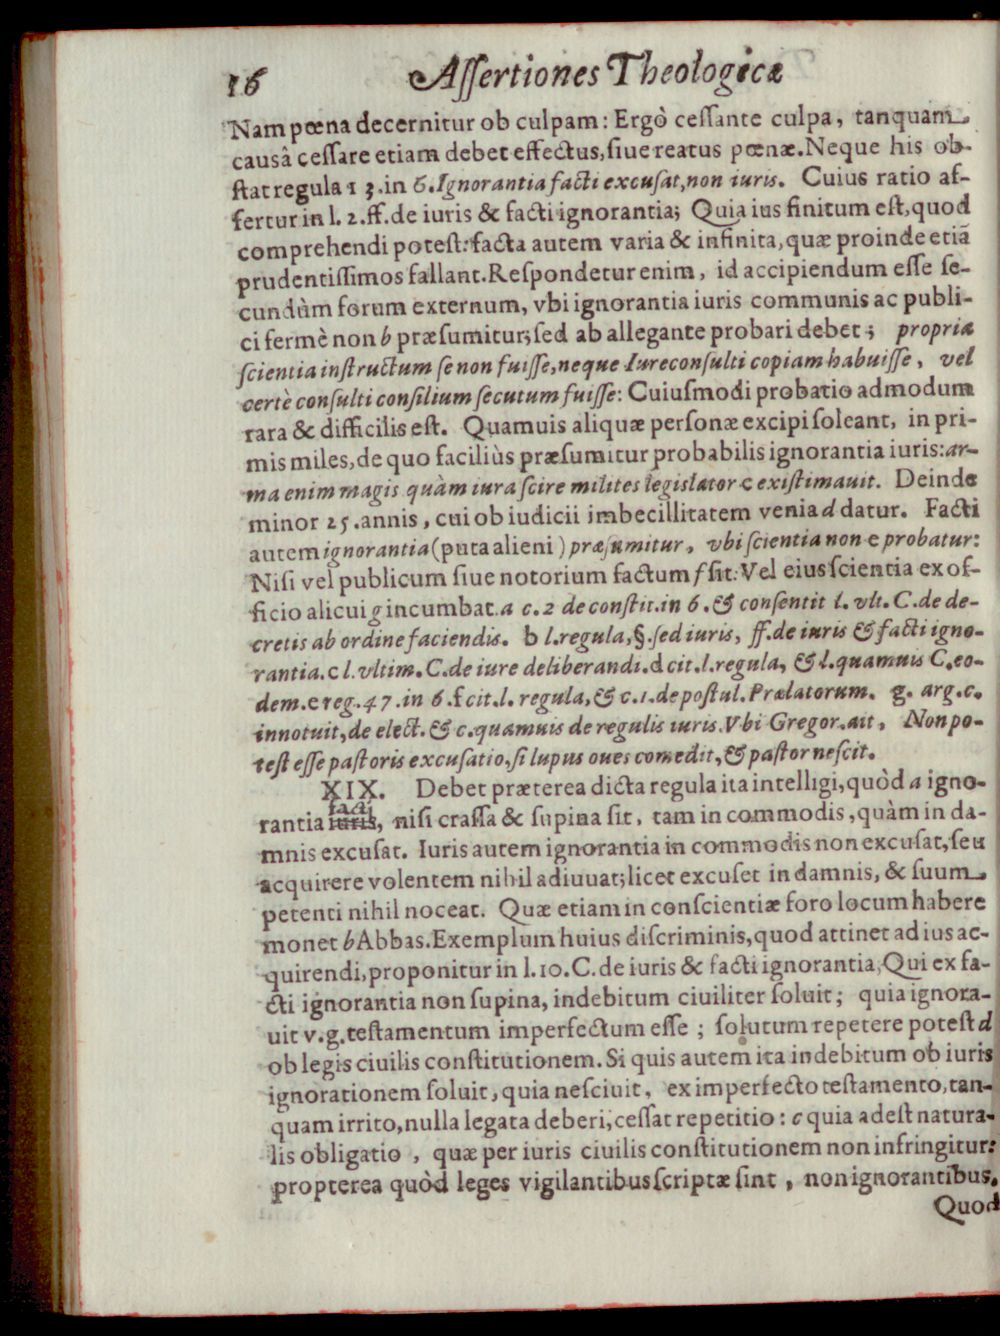 16 Aſſertiones Theologicæ
Nam pœna decernitur ob culpam: Ergò ceſſante culpa, tanquam
causâ ceſſare etiam debet effectus, ſiue reatus pœnæ. Neque his ob-
ſtat regula 13. in 6. Ignorantia facti excuſat, non iuris. Cuius ratio af-
fertur in l. 2. ff. de iuris & facti ignorantia; Quia ius finitum eſt, quod
comprehendi poteſt: facta autem varia & infinita, quæ proinde etiã
prudentiſſimos fallant. Reſpondetur enim, id accipiendum eſſe ſe-
cundùm forum externum, vbi ignorantia iuris communis ac publi-
ci fermè non b præſumitur; ſed ab allegante probari debet; propria
ſcientia inſtructum ſe non fuiſſe, neque Iureconſulti copiam habuiſſe, vel
certè conſulti conſilium ſecutum fuiſſe: Cuiuſmodi probatio admodum
rara & difficilis eſt. Quamuis aliquæ perſonæ excipi ſoleant, in pri-
mis miles, de quo faciliùs præſumitur probabilis ignorantia iuris: ar-
ma enim magis quàm iura ſcire milites legislator c exiſtimauit. Deinde
minor 25. annis, cui ob iudicii imbecillitatem venia d datur. Facti
autem ignorantia (puta alieni) præſumitur, vbi ſcientia non e probatur:
Niſi vel publicum ſiue notorium factum f ſit: Vel eius ſcientia ex of-
ficio alicui g incumbat. a c. 2 de conſtit. in 6. & conſentit l. vlt. C. de de-
cretis ab ordine faciendis. b l. regula, §. ſed iuris, ff. de iuris & facti igno-
rantia. c l. vltim. C. de iure deliberandi. d cit. l. regula, & l. quamuis C. eo-
dem. e reg. 47. in 6. f cit. l. regula, & c. 1. de poſtul. Prælatorum. g. arg. c.
innotuit, de elect. & c. quamuis de regulis iuris. Vbi Gregor. ait, Non po-
teſt eſſe paſtoris excuſatio, ſi lupus oues comedit, & paſtor neſcit.
XIX. Debet præterea dicta regula ita intelligi, quòd a igno-
facti
rantia iuris, niſi craſſa & ſupina ſit, tam in commodis, quàm in da-
mnis excuſat. Iuris autem ignorantia in commodis non excuſat, ſeu
acquirere volentem nihil adiuuat; licet excuſet in damnis, & ſuum
petenti nihil noceat. Quæ etiam in conſcientiæ foro locum habere
monet b Abbas. Exemplum huius diſcriminis, quod attinet ad ius ac-
quirendi, proponitur in l. 10. C. de iuris & facti ignorantia, Qui ex fa-
cti ignorantia non ſupina, indebitum ciuiliter ſoluit; quia ignora-
uit v. g. teſtamentum imperfectum eſſe; ſolutum repetere poteſt d
ob legis ciuilis conſtitutionem. Si quis autem ita indebitum ob iuris
ignorationem ſoluit, quia neſciuit, ex imperfecto teſtamento, tan-
quam irrito, nulla legata deberi, ceſſat repetitio: c quia adeſt natura-
lis obligatio, quæ per iuris ciuilis conſtitutionem non infringitur:
propterea quòd leges vigilantibus ſcriptæ ſint, non ignorantibus.
Quod